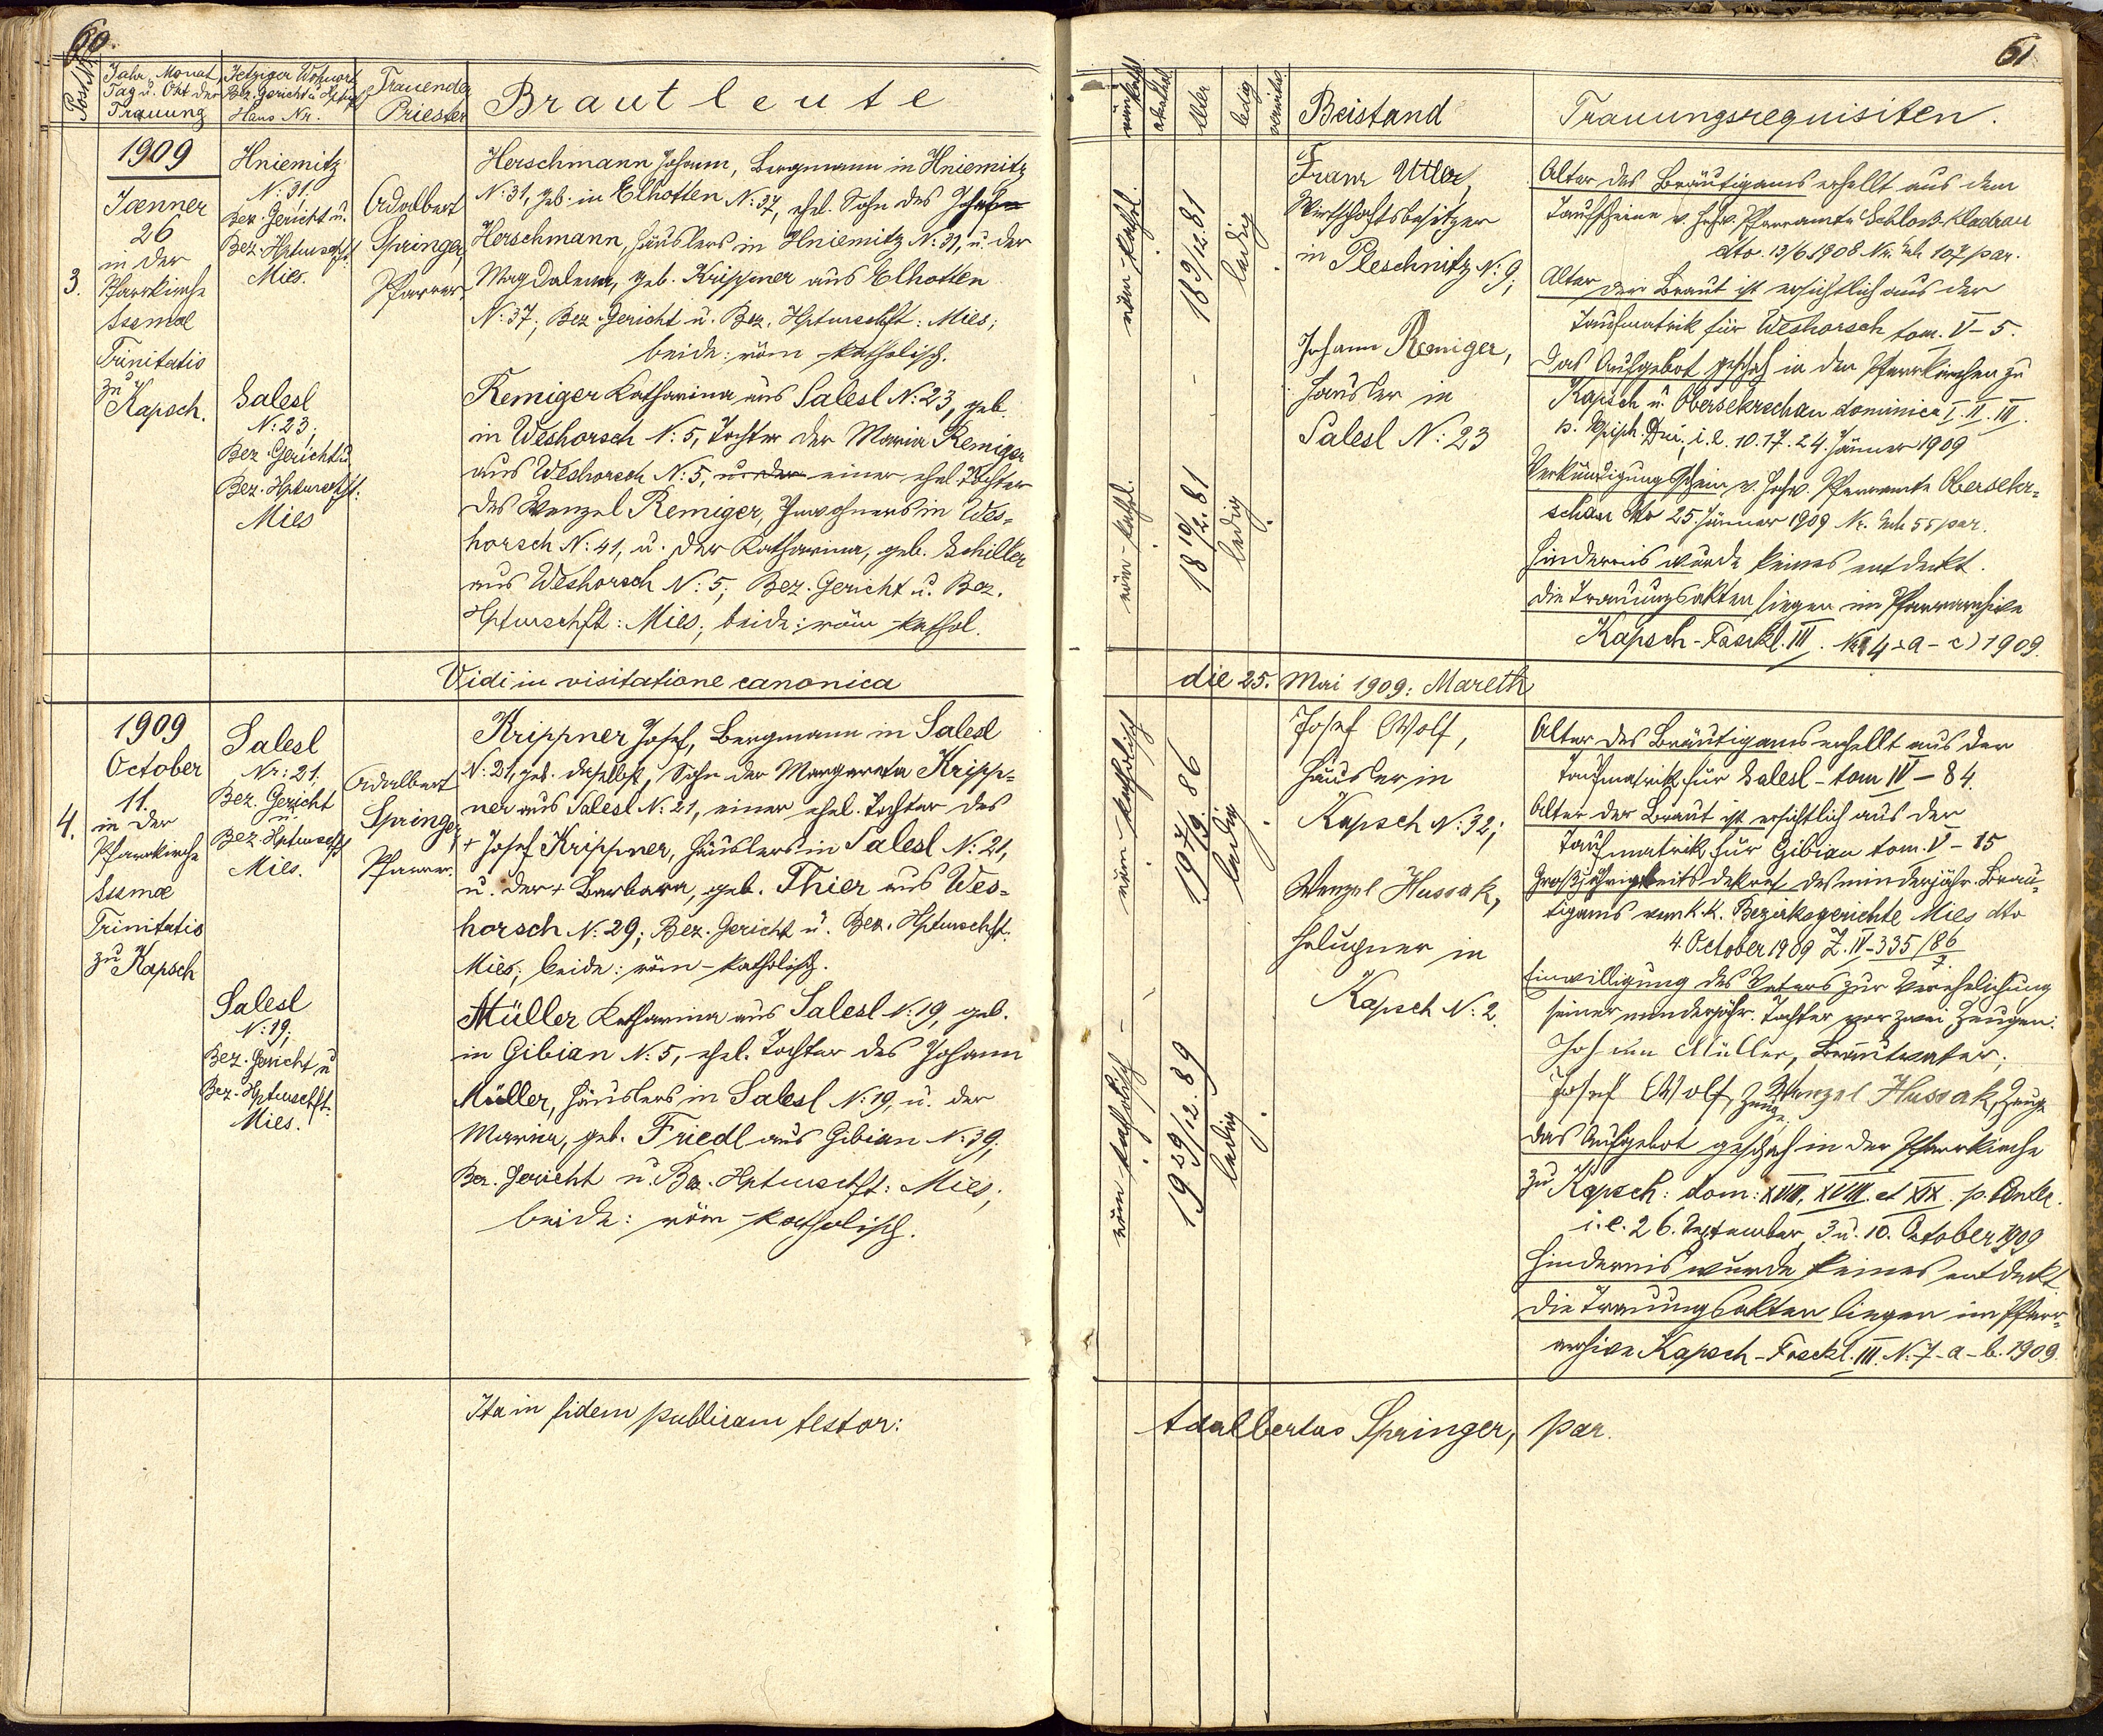 60.
Post-Nr.
Jahr, Monat,
Tag u. Ort der
Trauung
Jetziger Wohnort
Bez. Gericht u. Hptmschft
Haus Nr.
Trauender
Priester
Brautleute
3.
1909
Jænner
26
in der
Pfarrkirche
Ssmæ
Trinitatis
zu
Kapsch.
Hniemitz
N: 31;
Bez. Gericht u.
Bez. Hptmschft:
Mies.
Salesl
N: 23;
Bez. Gericht u
Bez. Hptmschft:
Mies
Adalbert
Springer,
Pfarrer.
Herschmann Johann, Bergmann in Hniemitz
N: 31, geb. in Elhotten N: 37, ehel. Sohn des Johann
Herschmann, Häuslers in Hniemitz N: 31, u. der
Magdalena, geb. Krippner aus Elhotten
N: 37; Bez. Gericht u. Bez. Hptmschft: Mies;
beide: röm-katholisch.
Remiger Katharina aus Salesl N: 23, geb.
in Weshorsch N: 5, Tochter der Maria Remiger
aus Weshorsch N: 5, u. der einer ehel. Tochter
des Wenzel Remiger, Inwohners in Wes=
horsch N: 41, u. der Katharina, geb. Schiller
aus Weshorsch N: 5; Bez. Gericht u. Bez.
Hptmschft: Mies; beide: röm-kathol.
Vidi in visitatione canonica
4.
1909
October
11.
in der
Pfarrkirche
Ssmæ
Trinitatis
zu Kapsch
Salesl
Nr: 21.
Bez. Gericht
u.
Bez. Hptmschft
Mies.
Salesl
N: 19;
Bez. Gericht u
Bez. Hptmschft:
Mies.
Adalbert
Springer,
Pfarrer.
Krippner Josef, Bergmann in Salesl
N: 21, geb. daselbst, Sohn der Margareta Kripp=
ner aus Salesl N: 21, einer ehel. Tochter des
+ Josef Krippner, Häuslers in Salesl N: 21,
u. der + Barbara, geb. Thier aus Wes=
horsch N: 29; Bez. Gericht u. Bez. Hptmschft:
Mies; beide: röm-katholisch.
Müller Katharina aus Salesl N: 19, geb.
in Gibian N: 5, ehel. Tochter des Johann
Müller, Häuslers in Salesl N: 19, u. der
Maria, geb. Friedl aus Gibian N: 39;
Bez. Gericht u. Bez. Hptmschft: Mies;
beide: röm-katholisch.
Ita in fidem publicam testor:
61
Alter
ledig
verwitw.
Beistand
Trauungsrequisiten.
röm-kathol.
18 9/12. 81
ledig
röm-kathol.
18 10/12. 81
ledig
Franz Uttler,
Wirtschaftsbesitzer
in Pleschnitz N: 9;
Johann Remiger,
Häusler in
Salesl N: 23
Alter des Bräutigams erhellt aus dem
Taufscheine v. hochw. Pfarramte Schloß-Kladrau
dto. 13/6 1908 Nr. Exh 107 par.
Alter der Braut ist ersichtlich aus der
Taufmatrik für Weshorsch tom. V-5.
Das Aufgebot geschah in den Pfarrkirchen zu
Kapsch u. Obersekrschan dominica I. II. III.
p. Epiph. Dni, i. e. 10. 17. 24. Jänner 1909
Verkündigungsschein v. hochw. Pfarramte Obersekr=
schan dto 25. Jänner 1909 Nr. Exh 55 par.
Hindernis wurde keines entdeckt.
Die Trauungsakten liegen im Pfarrarchive
Kapsch-Faszkl. III. Nr 4 a-c) 1909.
die 25. Mai 1909: Mareth
röm-katholisch
19 7/9 86
ledig
röm-katholisch
19 29/12. 89
ledig
Josef Wolf,
Häusler in
Kapsch N: 32;
Wenzel Hussak,
Chalupner in
Kapsch N: 2.
Alter des Bräutigams erhellt aus der
Taufmatrik für Salesl - tom IV - 84.
Alter der Braut ist ersichtlich aus der
Taufmatrik für Gibian tom. V - 15
Großjährigkeitsdekret des minderjähr. Bräu=
tigams vom k. k. Bezirksgerichte Mies dto
4. October 1909 Z. IV-335/86
7.
Einwilligung des Vaters zur Verehelichung
seiner minderjähr. Tochter vor zwei Zeugen:
Johann Müller, Brautvater;
Josef Wolf, Zeuge Wenzel Hussak, Zeuge
Das Aufgebot geschah in der Pfarrkirche
zu Kapsch: dom: XVII, XVIII. et XIX. p. Pentec.
i. e. 26. September, 3. u. 10. October 1909
Hindernis wurde keines entdeckt.
Die Trauungsakten liegen im Pfarr=
archive Kapsch-Fasckl. III. N. 7-a-b. 1909.
Adalbertus Springer, par.